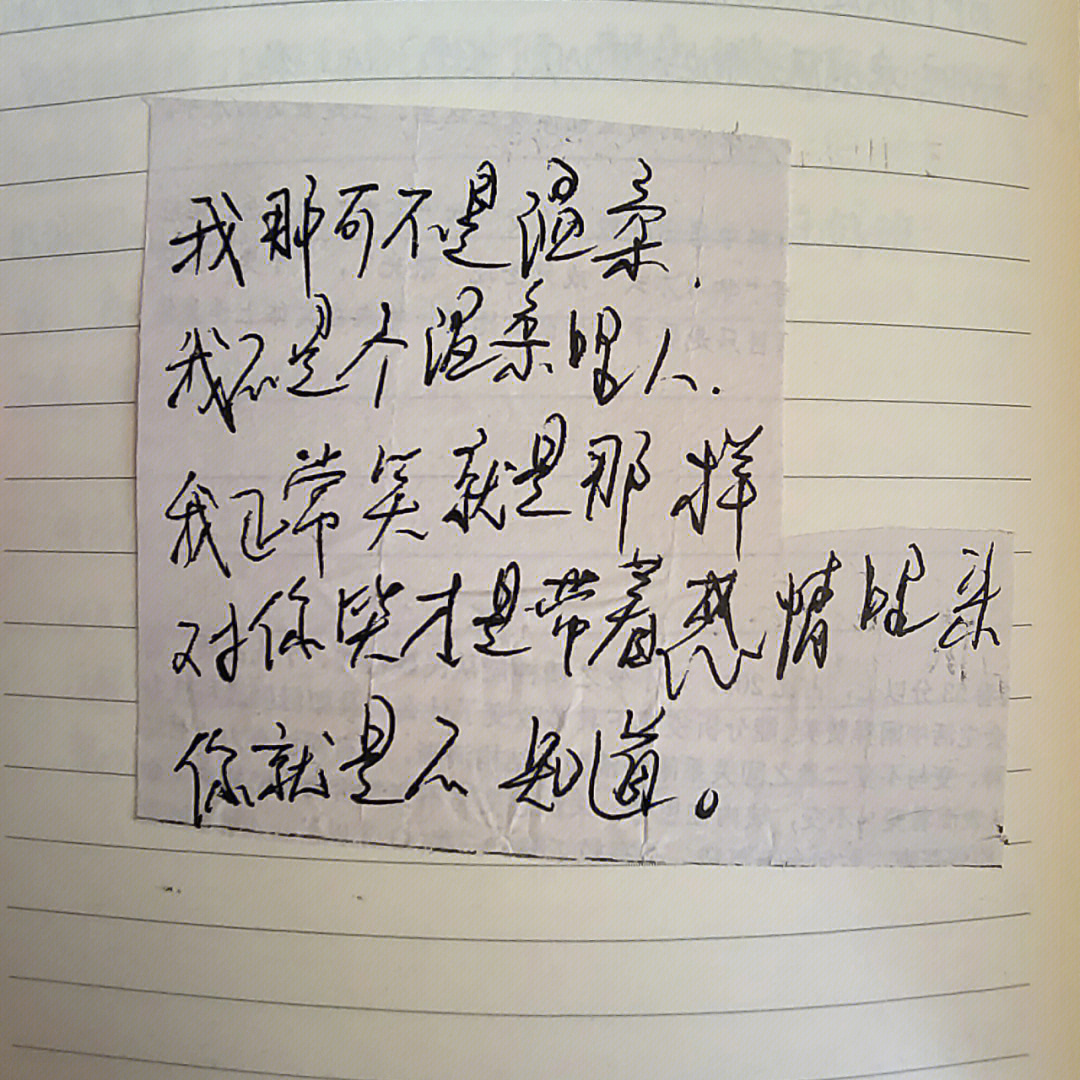 我那可不是温柔.
我不是个温柔哩人.
我正常笑就是那样
对你笑才是带着感情哩来
你就是不知道。